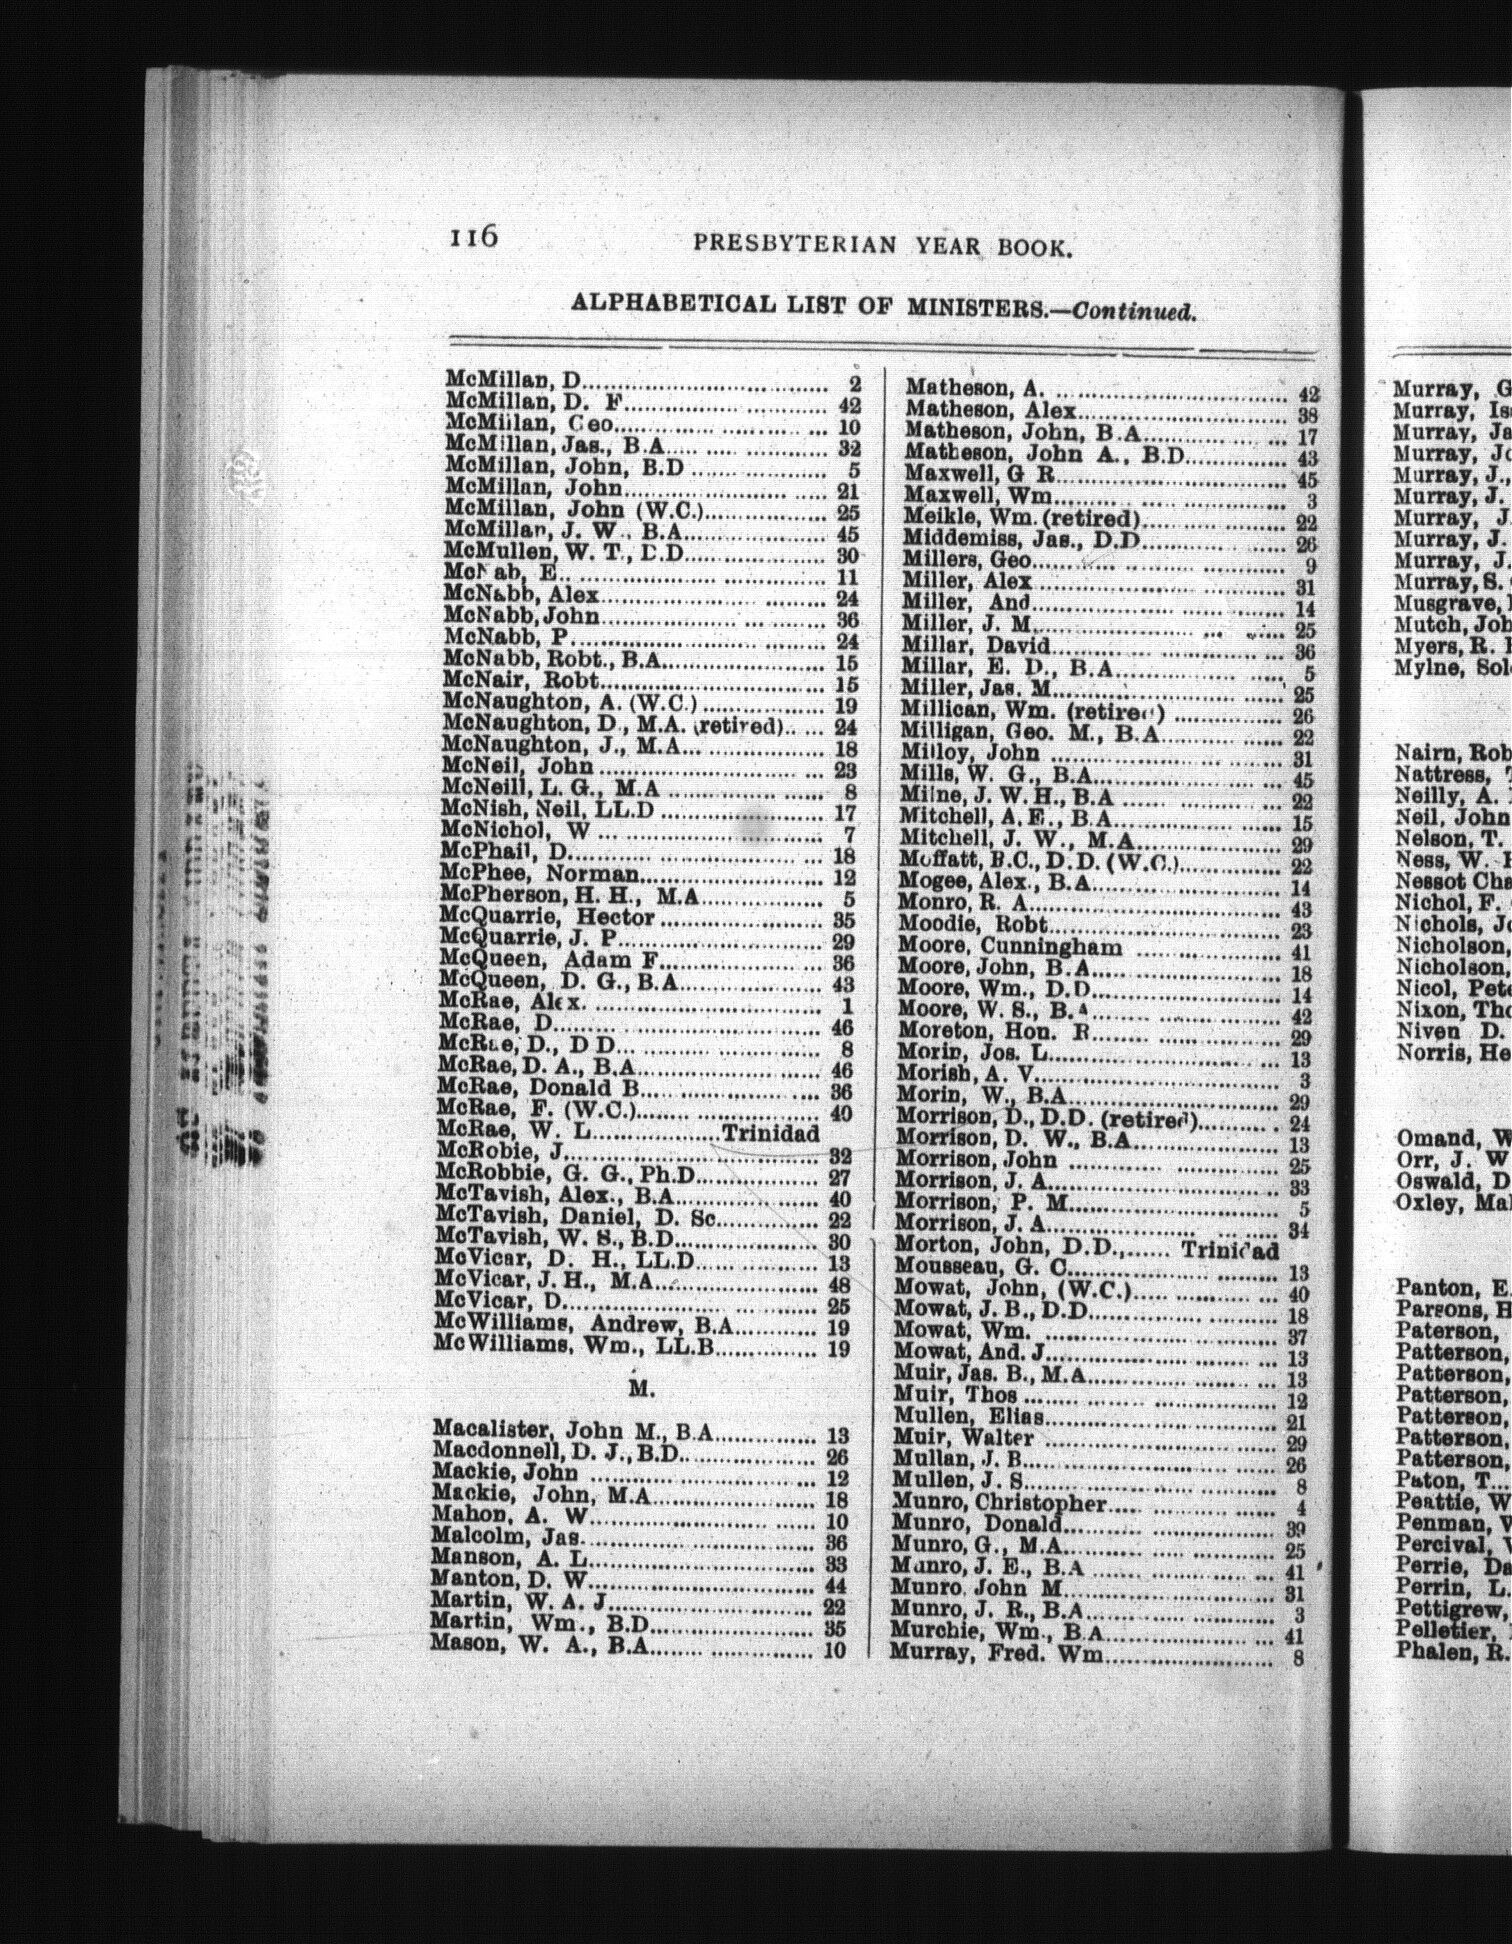 116
PRESBYTERIAN YEAR BOOK.
ALPHABETICAL LIST OF MINISTERS.—Continued.
McMillan, D. 2
McMillan, D. F. 42
McMillan, Geo. 10
McMillan, Jas., B.A. 32
McMillan, John, B.D. 5
McMillan, John 21
McMillan, John (W.C.) 25
McMillan, J. W., B.A. 45
McMullen, W. T., D.D. 30
McNab, E. 11
McNabb, Alex 24
McNabb, John 36
McNabb, P. 24
McNabb, Robt., B.A. 15
McNair, Robt. 15
McNaughton, A. (W.C.) 19
McNaughton, D., M.A. (retired) 24
McNaughton, J., M.A. 18
McNeil, John 23
McNeill, L. G., M.A. 8
McNish, Neil, LL.D 17
McNichol, W 7
McPhail, D. 18
McPhee, Norman 12
McPherson, H. H., M.A. 5
McQuarrie, Hector 35
McQuarrie, J. P. 29
McQueen, Adam F. 36
McQueen, D. G., B.A. 43
McRae, Alex. 1
McRae, D. 46
McRae, D., D D. 8
McRae, D. A., B.A. 46
McRae, Donald B. 36
McRae, F. (W.C.) 40
McRae, W. L. Trinidad
McRobie, J. 32
McRobbie, G. G., Ph.D. 27
McTavish, Alex., B.A. 40
McTavish, Daniel, D. Sc. 22
McTavish, W. S., B.D. 30
McVicar, D. H., LL.D. 13
McVicar, J. H., M.A. 48
McVicar, D. 25
McWilliams, Andrew, B.A. 19
McWilliams, Wm., LL.B. 19
M.
Macalister, John M., B.A. 13
Macdonnell, D. J., B.D. 26
Mackie, John 12
Mackie, John, M.A. 18
Mahon, A. W. 10
Malcolm, Jas. 36
Manson, A. L. 33
Manton, D. W. 44
Martin, W. A. J. 22
Martin, Wm., B.D. 35
Mason, W. A., B.A. 10
Matheson, A. 42
Matheson, Alex. 38
Matheson, John, B.A. 17
Matheson, John A., B.D. 43
Maxwell, G R. 45
Maxwell, Wm. 3
Meikle, Wm. (retired) 22
Middemiss, Jas., D.D. 26
Millers, Geo. 9
Miller, Alex 31
Miller, And. 14
Miller, J. M. 25
Millar, David 36
Millar, E. D., B.A. 5
Miller, Jas. M. 25
Millican, Wm. (retired) 26
Milligan, Geo. M., B.A. 22
Milloy, John 31
Mills, W. G., B.A. 45
Milne, J. W. H., B.A 22
Mitchell, A. E., B.A. 15
Mitchell, J. W., M.A. 29
Moffatt, R.C., D.D. (W.C.) 22
Mogee, Alex., B.A. 14
Monro, R. A. 43
Moodie, Robt. 23
Moore, Cunningham 41
Moore, John, B.A. 18
Moore, Wm., D.D. 14
Moore, W. S., B.A 42
Moreton, Hon. R. 29
Morin, Jos. L. 13
Morish, A. V. 3
Morin, W., B.A. 29
Morrison, D., D.D. (retired) 24
Morrison, D. W., B.A. 13
Morrison, John 25
Morrison, J. A. 33
Morrison, P. M. 5
Morrison, J. A. 34
Morton, John, D.D., Trinidad
Mousseau, G. C. 13
Mowat, John, (W.C.) 40
Mowat, J. B., D.D. 18
Mowat, Wm. 37
Mowat, And. J. 13
Muir, Jas. B., M.A. 13
Muir, Thos 12
Mullen, Elias 21
Muir, Walter 29
Mullan, J. B. 26
Mullen, J. S. 8
Munro, Christopher 4
Munro, Donald 39
Munro, G., M.A. 25
Munro, J. E., B.A 41
Munro, John M. 31
Munro, J. R., B.A. 3
Murchie, Wm., B.A. 41
Murray, Fred. Wm. 8
Murray, G
Murray, Is
Murray, Ja
Murray, Jo
Murray, J.,
Murray, J.
Murray, J.
Murray, J.
Murray, J.
Murray, S.
Musgrave,
Mutch, Joh
Myers, R.
Mylne, Sol
Nairn, Rob
Nattress,
Neilly, A.
Neil, John
Nelson, T.
Ness, W.
Nessot Cha
Nichol, F.
Nichols, Jo
Nicholson,
Nicholson,
Nicol, Pete
Nixon, Tho
Niven D.
Norris, He
Omand, W
Orr, J. W
Oswald, D
Oxley, Mal
Panton, E.
Parsons, H
Paterson,
Patterson,
Patterson,
Patterson,
Patterson,
Patterson,
Patterson,
Paton, T.
Peattie, W
Penman, W
Percival, W
Perrie, Da
Perrin, L.
Pettigrew,
Pelletier,
Phalen, R.